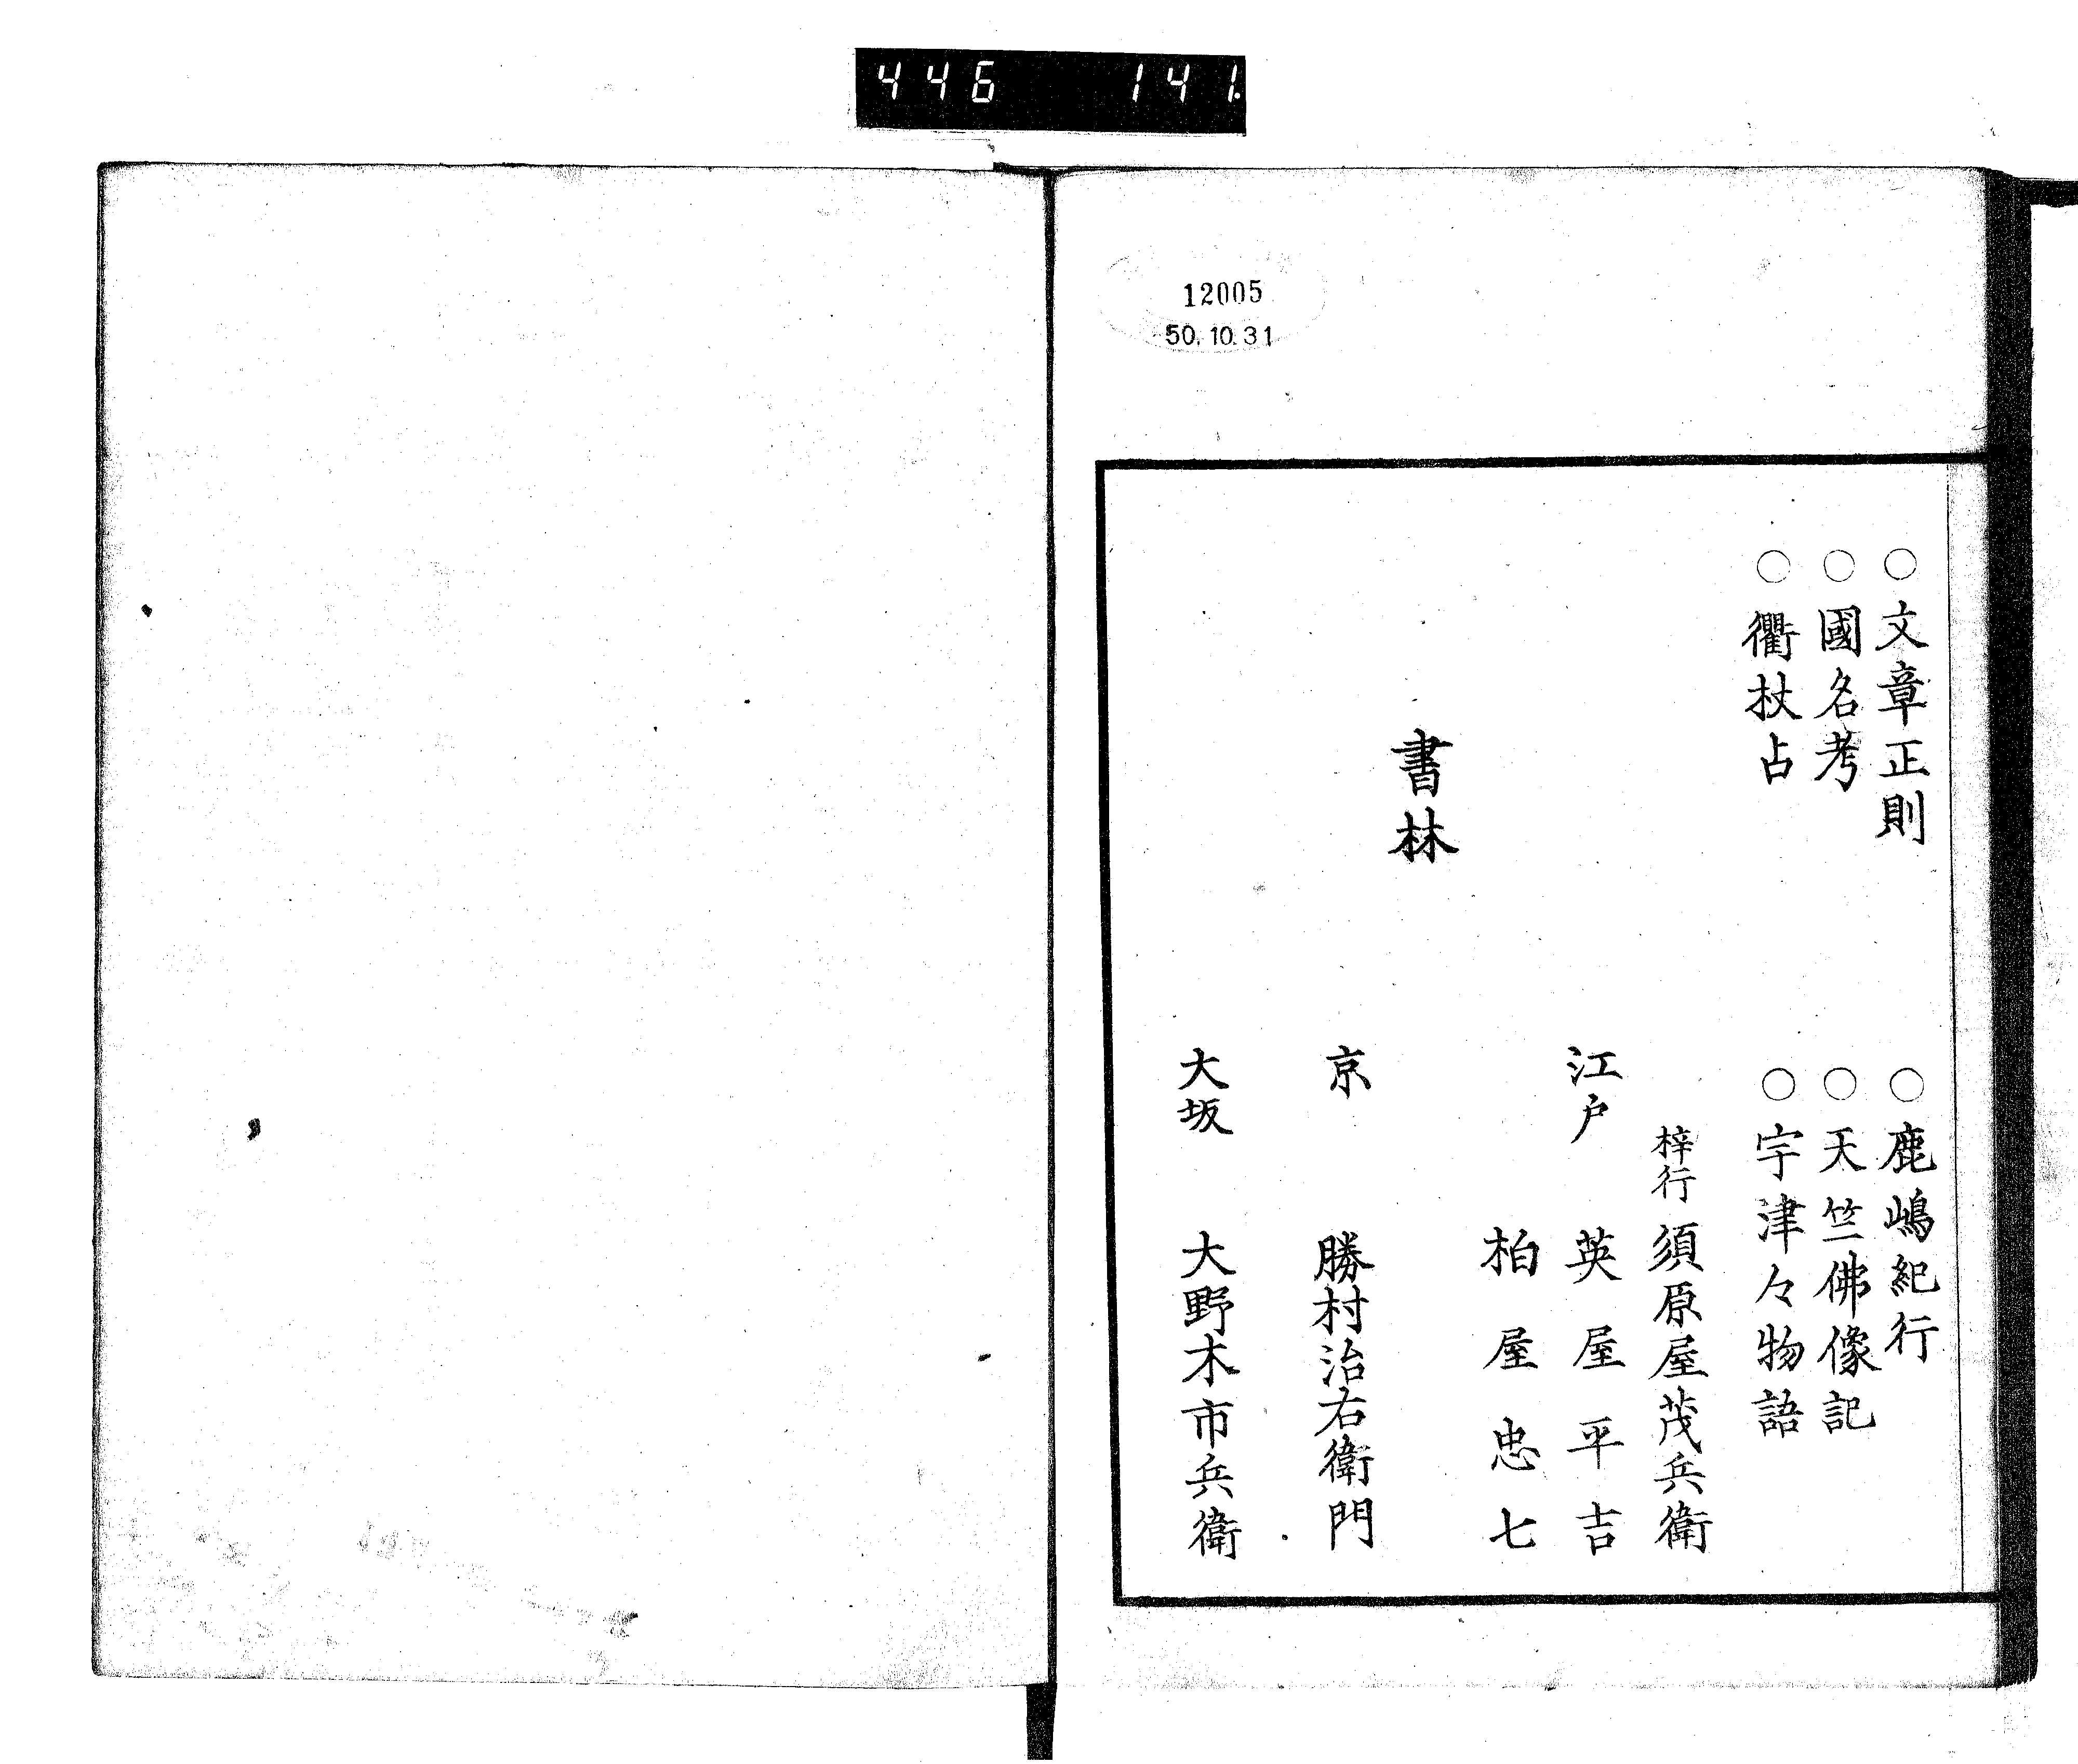 446 141.
12005
50.10.31
○文章正則 ○鹿嶋紀行
○國名考 ○天竺佛像記
○衢杖占 ○宇津々物語
梓行 須原屋茂兵衛
江戸 英屋平吉
柏屋忠七
書林
京 勝村治右衛門
大坂 大野木市兵衛